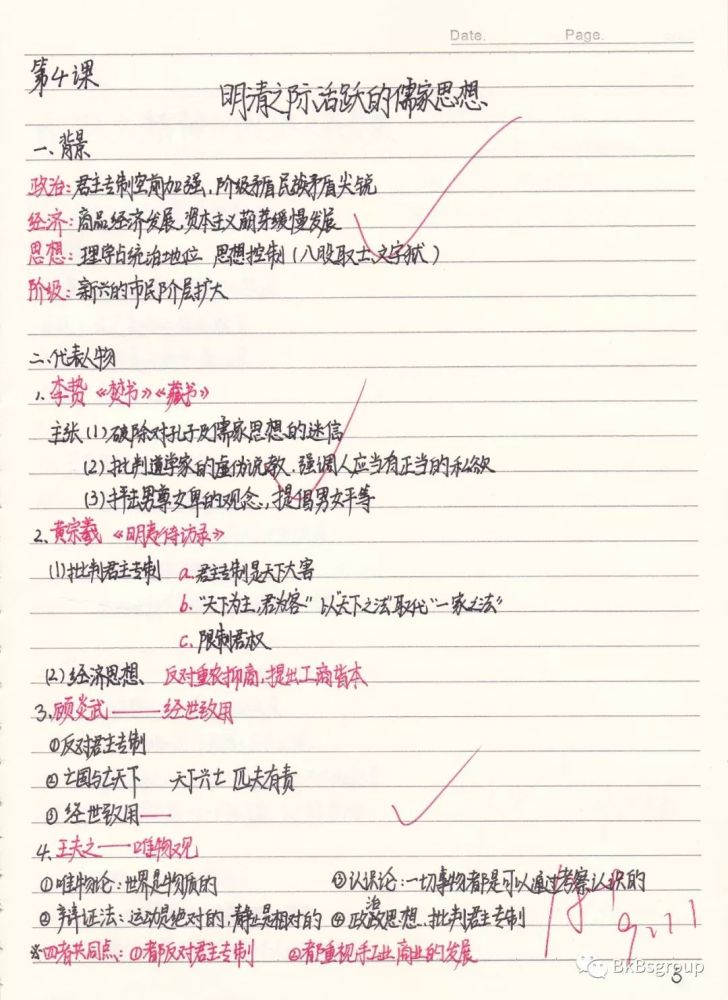 Date.    Page.
第4课
明清之际活跃的儒家思想
一、背景
政治：君主专制空前加强，阶级矛盾民族矛盾尖锐
经济：商品经济发展，资本主义萌芽缓慢发展
思想：理学占统治地位 思想控制（八股取士,文字狱）
阶级：新兴的市民阶层扩大
二、代表人物
1、李贽《焚书》《藏书》
主张(1)破除对孔子及儒家思想的迷信
(2)批判道学家的虚伪说教，强调人应当有正当的私欲
(3)抨击男尊女卑的观念，提倡男女平等
2、黄宗羲《明夷待访录》
(1)批判君主专制 a.君主专制是天下大害
b."天下为主,君为客" 以"天下之法"取代"一家之法"
c.限制君权
(2)经济思想、反对重农抑商,提出工商皆本
3、顾炎武——经世致用
①反对君主专制
②亡国与亡天下 天下兴亡 匹夫有责
③经世致用——
4、王夫之——唯物观
①唯物论：世界是物质的 ③认识论：一切事物都是可以通过考察认识的
②辩证法：运动是绝对的,静止是相对的 ④政治思想、批判君主专制
※四者共同点：①都反对君主专制 ②都重视手工业商业的发展
9.11
BkBsgroup
3